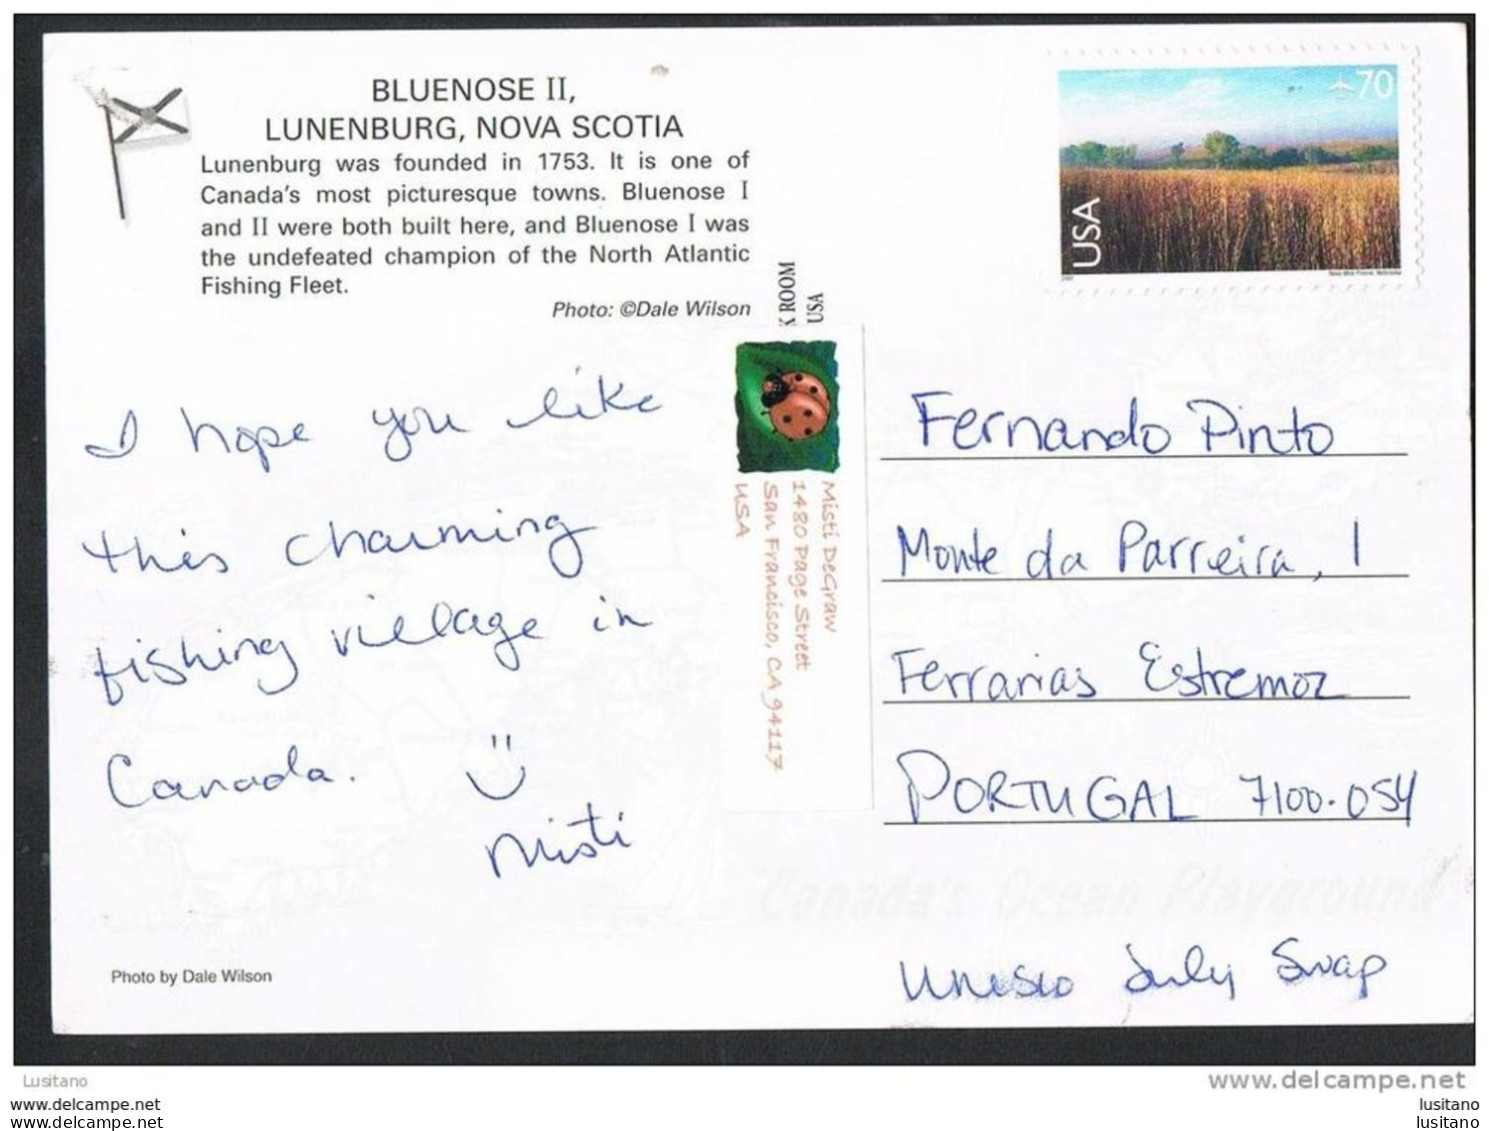 BLUENOSE II,
LUNENBURG, NOVA SCOTIA
Lunenburg was founded in 1753. It is one of
Canada's most picturesque towns. Bluenose I
and II were both built here, and Bluenose I was
the undefeated champion of the North Atlantic
Fishing Fleet.
Photo: ©Dale Wilson
I hope you like
this charming
fishing village in
Canada.
Misti
Photo by Dale Wilson
K ROOM
USA
Misti DeGraw
1480 Page Street
San Francisco, CA 94117
USA
70
USA
Nine-Mile Prairie, Nebraska
Fernando Pinto
Monte da Parreira, 1
Ferrarias Estremoz
PORTUGAL 7100-054
Canada's Ocean Playground
Unesco July Swap
Lusitano
www.delcampe.net
lusitano
lusitano
lusitano
lusitano